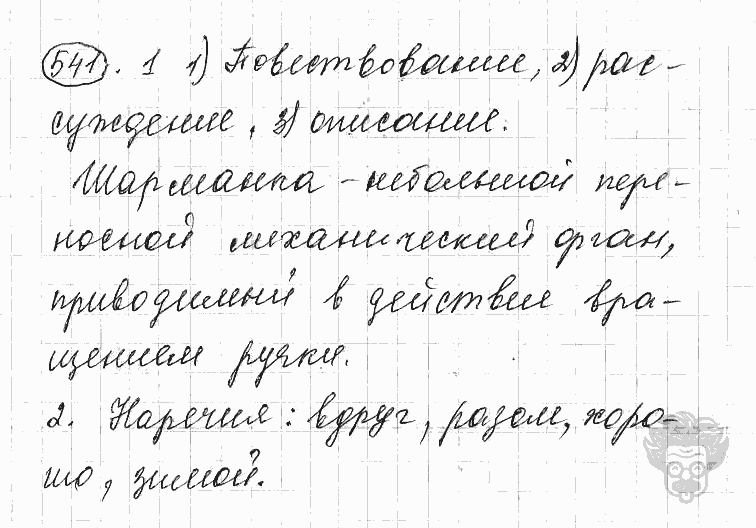 541. 1 1) Повествование, 2) рас-
суждение, 3) описание.
Шарманка – небольшой пере-
носной механический орган,
приводимый в действие вра-
щением ручки.
2. Наречия: вдруг, разом, хоро-
шо, зимой.